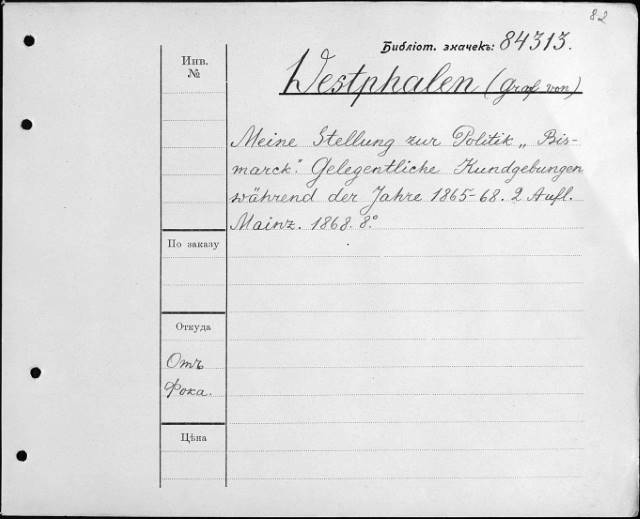 82
Библіот. значекъ: 84313.
Инв.
№
Westphalen (Graf von)
Meine Stellung zur Politik „ Bis-
marck". Gelegentliche Kundgebungen
während der Jahre 1865-68. 2 Aufl.
Mainz. 1868. 8º.
По заказу
Откуда
Отъ
Фока.
Цѣна